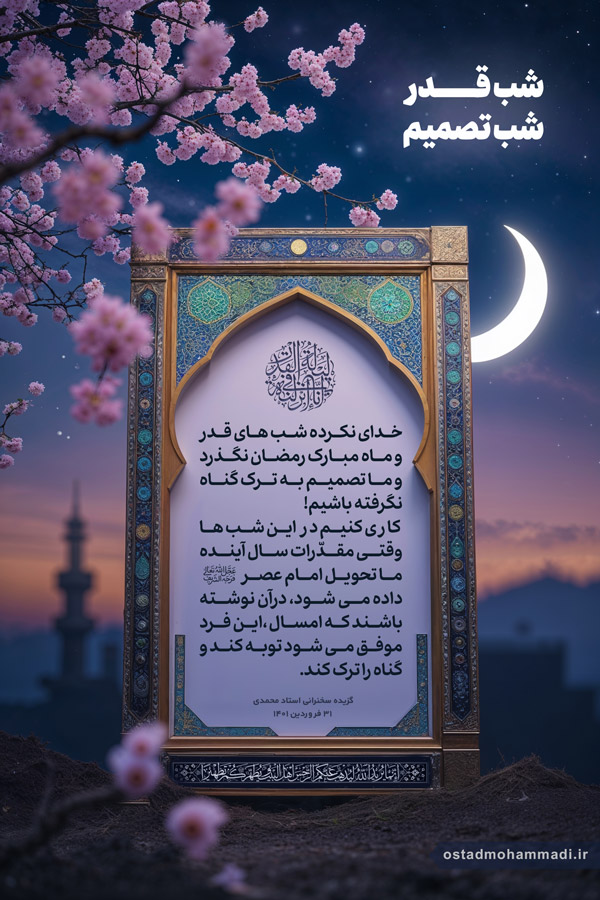 شب قــدر
شب تصمیم
إنا أنزلناه في ليلة القدر
خدای نکرده شب های قدر
و ماه مبارک رمضان نگذرد
و ما تصمیم به ترک گناه
نگرفته باشیم!
کاری کنیم در این شب ها
وقتی مقدّرات سال آینده
ما تحویل امام عصر عجل الله تعالی فرجه الشریف
داده می شود، درآن نوشته
باشند که امسال ،این فرد
موفق می شود توبه کند و
گناه را ترک کند.
گزیده سخنرانی استاد محمدی
۳۱ فروردین ۱۴۰۱
إنما يريد الله ليذهب عنكم الرجس أهل البيت ويطهركم تطهيرا
ostadmohammadi.ir